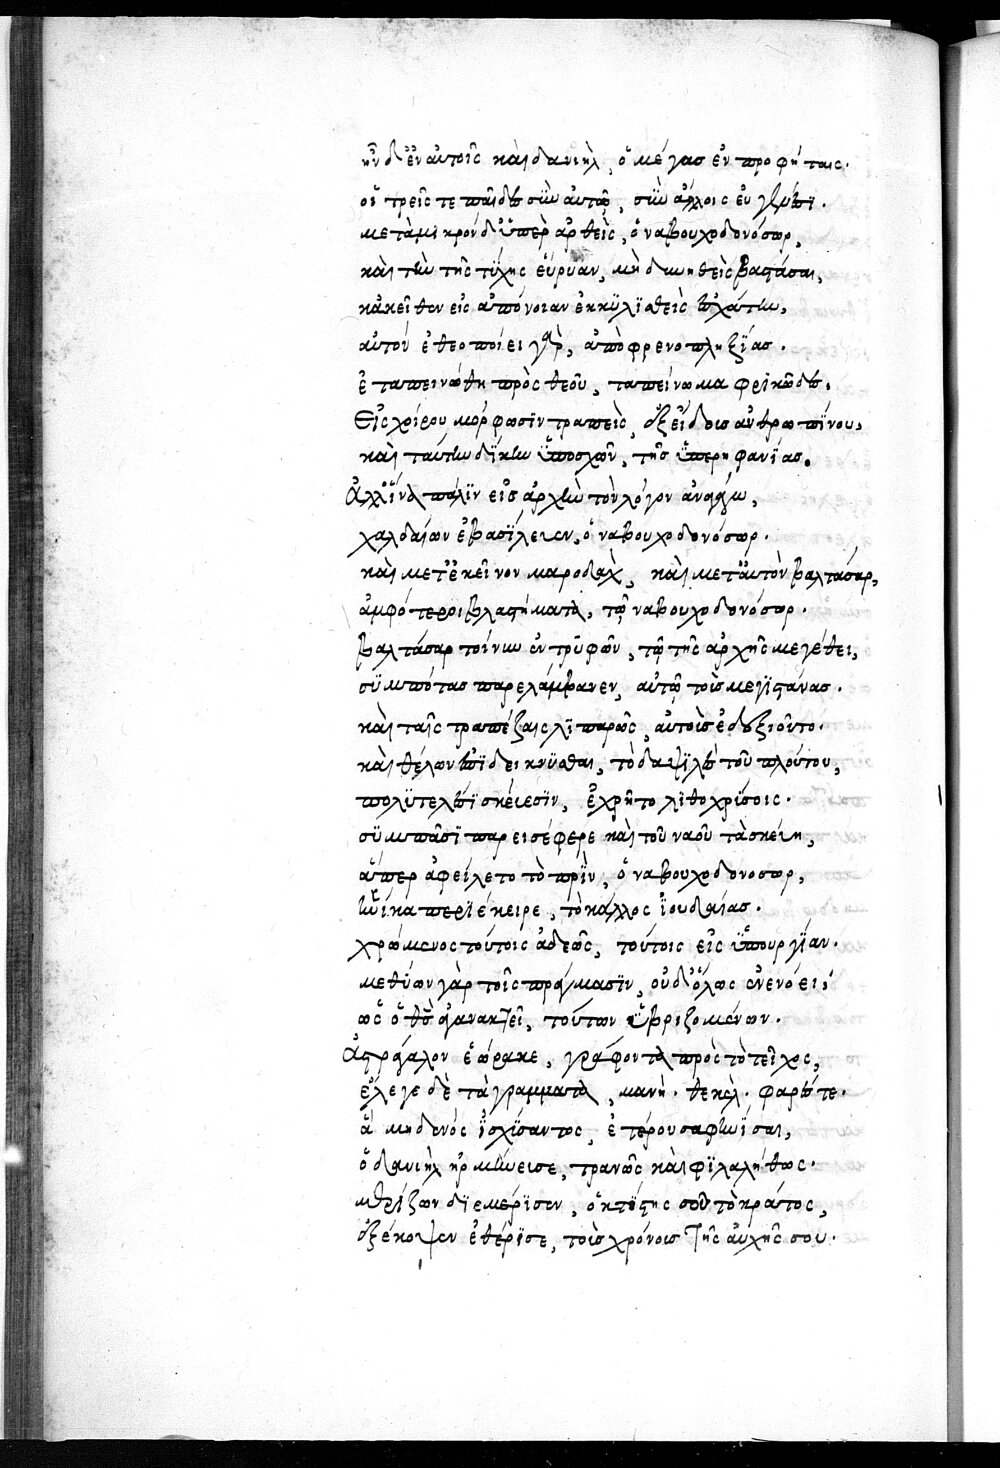 ἦν δ' ἐν αὐτοῖς καὶ δανιὴλ, ὁ μέγας ἐν προφήταις.
οἵ τρεῖς τε παῖδες σὺν αὐτῶ, σὺν ἄλλοις εὐγενέσι.
μετὰ μικρὸν δ' ὑπὲρ ἀρθεὶς, ὁ ναβουχοδονόσωρ,
καὶ τὴν τῆς τύχης εὔρυαν, μὴ δυνηθεὶς βαστάσαι,
κἀκεῖθεν εἰς ἀπόνοιαν ἐκκϋλϊσθεὶς ἐσχάτην,
αὐτὸν ἐθεοποίει γὰρ, ἀπὸ φρενοπληξΐας.
ἐταπεινώθη πρὸς θεοῦ, ταπείνωμα φρικῶδες.
Εἰς χοίρου μόρφωσϊν τραπεὶς, ἐξ εἴδους ἀνθρωπΐνου,
καὶ ταύτην δΐκην ὑποσχῶν, τῆς ὑπερηφανΐας.
Ἀλλ' ἵνα πάλϊν εἰς ἀρχὴν τὸν λόγον ἀναγάγω,
χαλδαίων ἐβασΐλευεν, ὁ ναβουχοδονόσωρ.
καὶ μετ' ἐκεῖνον μαροδαχ, καὶ μετ' αὐτὸν βαλτάσαρ,
ἀμφότεροι βλαστήματα, τῶ ναβουχοδονόσωρ.
Βαλτάσαρ τοίνυν ἐντρϋφῶν, τῶ τῆς ἀρχῆς μεγέθει,
σϋμπότας παρελάμβανεν, αὐτῶ τοὺς μεγϊστάνας.
καὶ ταῖς τραπέζαις λϊπαρῶς, αὐτοὺς ἐδεξιοῦτο.
καὶ θέλων ἐπϊδείκνϋσθαι, τὸ δαψϊλὲς τοῦ πλούτου,
πολϋτελέσϊ σκεύεσϊν, ἐχρῆτο λϊθοχρύσοις.
σϋμπᾶσϊ παρεισέφερε καὶ τοῦ ναοῦ τὰ σκεύη,
ἅπερ ἀφείλετο τὸ πρϊν, ὁ ναβουχοδονοσωρ,
ἡνίκα περϊέκειρε, τὸ κάλλος ἰουδαίας.
χρώμενος τούτοις ἀδεῶς, τούτοις εἰς ὑπουργΐαν.
μεθύων γὰρ τοῖς πράγμασϊν, οὐδ' ὅλως ἐνενόει,
ὡς ὁ θς ἀγανακτεῖ, τούτων ὑβριζομένων.
Ἀστράγαλον ἑώρακε, γράφοντα πρὸς τὸ τεῖχος,
ἔλεγε δὲ τὰ γράμματα, μανὴ. θεκὲλ. φαρές τε.
ἃ μηδενὸς ἰσχΰσαντος, ἑτέρου σαφηνίσαι,
ὁ δανιὴλ ἡρμήνευσε, τρανῶς καὶ φϊλαλήθως.
μερίζων δϊεμέρϊσεν, ὁ κτΐστης σου τὸ κράτος,
ἐξέκοψεν ἐθέρϊσε, τοὺς χρόνους τῆς ἀρχῆς σου.